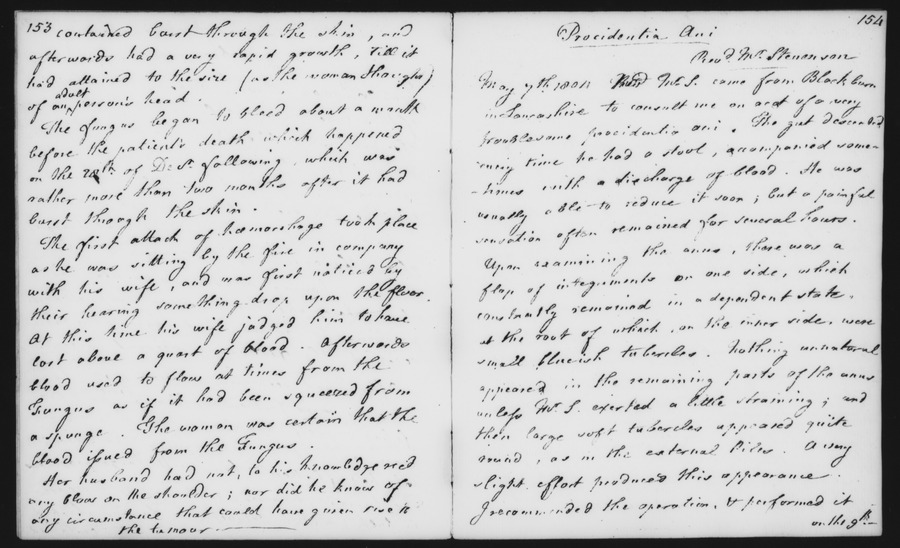 153
contained burst through the skin, and
afterwards had a very rapid growth, till it
had attained to the size (as the woman thought)
of an adult person's head.
The fungus began to bleed about a month
before the patient's death which happened
on the of Decr. following, which was
rather more than two months after it had
burst through the skin.
The first attack of hæmorrhage took place
as he was sitting by the fire in company
with his wife, and was first noticed by
their hearing something drop upon the floor.
At this time his wife judged him to have
lost above a quart of blood. Afterwards
blood used to flow at times from the
Fungus as if it had been squeezed from
a spunge. The woman was certain that the
blood issued from the Fungus.
Her husband had not, to his knowledge recd
any blow on the shoulder; nor did he know of
any circumstance that could have given rise to
the tumour.
154
Procidentia Ani
Revd. Mr. Stevenson
May 7th. 1804 Mr. S. came from Blackburn
in Lancashire to consult me on acct of a very
troublesome procidentia ani. The gut descended
every time he had a stool, accompanied some-
-times with a discharge of blood. He was
usually able to reduce it soon; but a painful
sensation often remained for several hours.
Upon examining the anus, there was a
flap of integuments on one side, which
constantly remained in a dependent state,
at the root of which, on the inner side, were
small blueish tubercles. Nothing unnatural
appeared in the remaining parts of the anus
unless Mr. S. exerted a little straining; and
then large soft tubercles appeared quite
round, as in the external Piles. A very
slight effort produced this appearance.
I recommended the operation, & performed it
on the 9th.